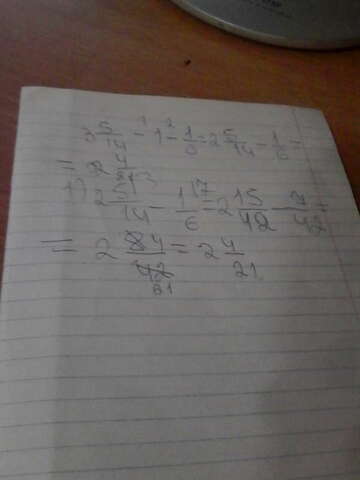 3 5/14 - 1 - 1/6 = 2 5/14 - 1/6 =
= 2 4/21
1) 2 5/14 - 1/6 = 2 15/42 - 7/42 =
= 2 84/42 = 2 4/21